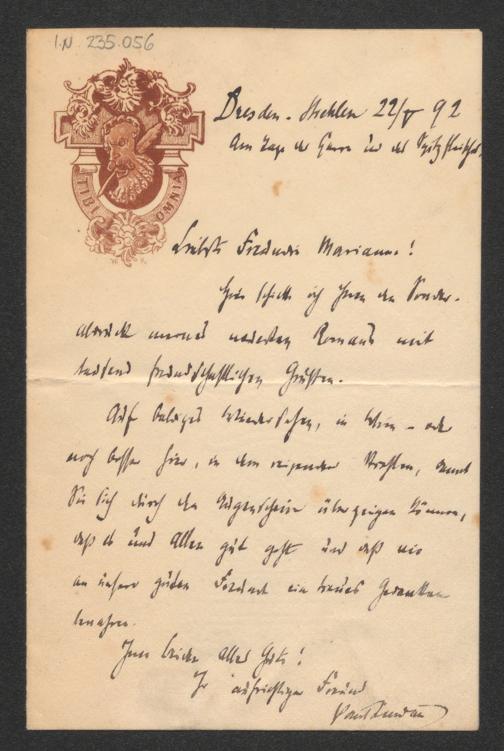 I.N. 235.056
TIBI OMNIA
Dresden-Strehlen 22/V 92
Am Tage der
Liebste Freundin Marianne!
Hier schicke ich Ihnen den Sonder-
abdruck meines neuesten Romans mit
tausend freundschaftlichen Grüßen.
Auf baldiges Wiedersehen, in Wien – oder
noch besser hier, in dem reizenden Strehlen, damit
Sie sich durch den Augenschein überzeugen können,
daß es uns allen gut geht und daß wir
an unsere guten Freunde ein treues Gedenken
bewahren.
Ihnen beiden alles Gute!
Ihr aufrichtiger Freund
Paul Lindau